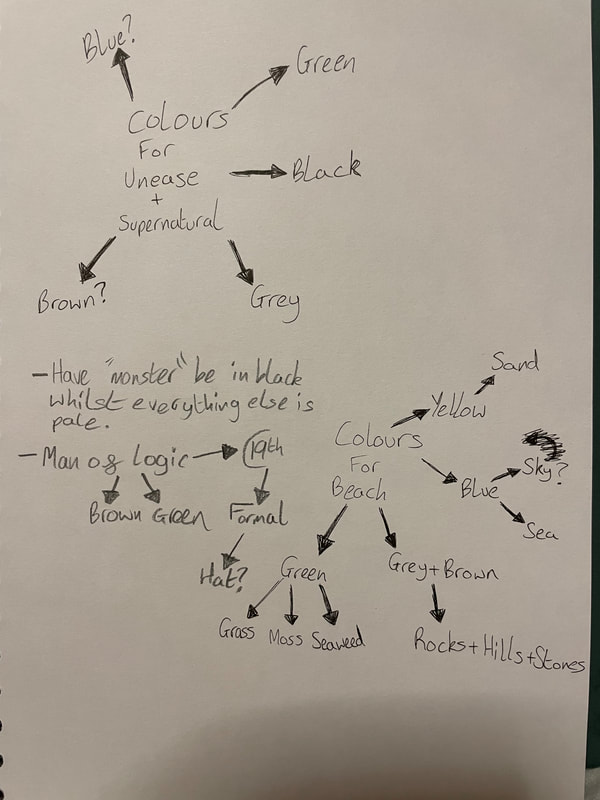 Blue?
Green
Colours
For
Unease
+
Supernatural
Black
Brown?
Grey
- Have "monster" be in black
whilst everything else is
pale.
- Man of logic
19th
Brown Green
Formal
Hat?
Colours
For
Beach
Yellow
Sand
Blue
Sky?
Sea
Green
Grass Moss Seaweed
Grey + Brown
Rocks + Hills + Stones